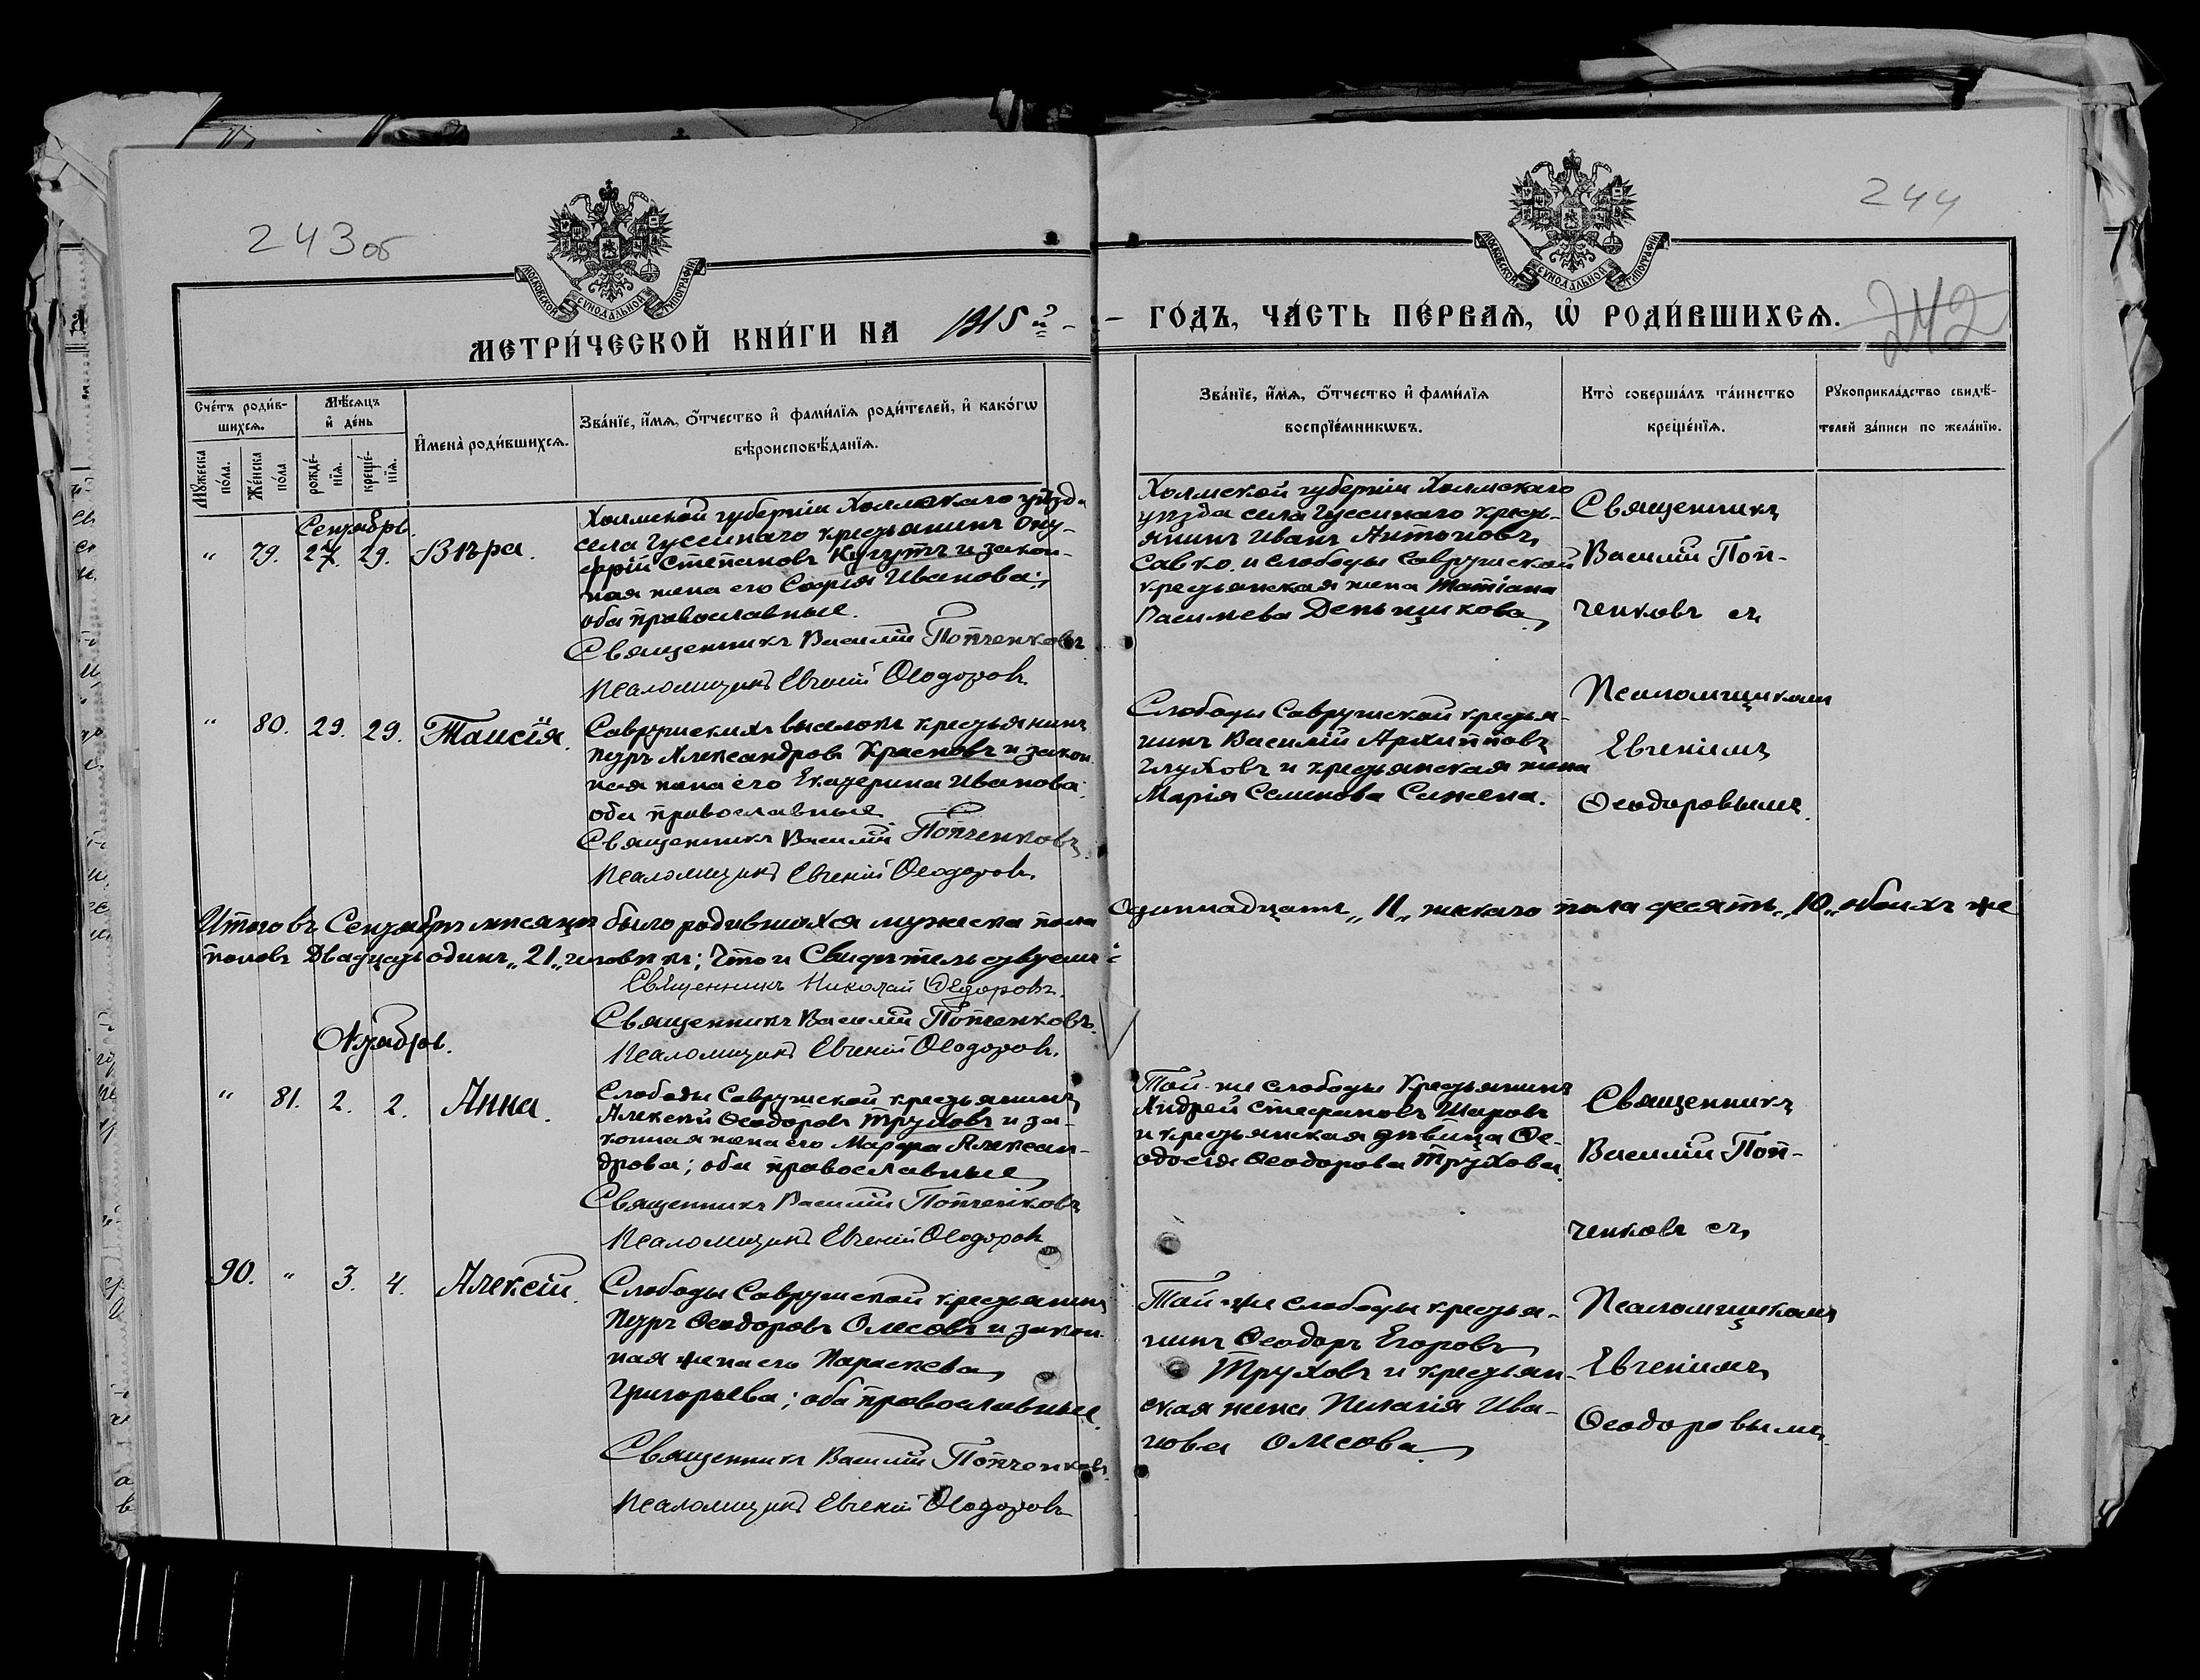 243об
244
МОСКОВСКОЙ СѴНОДАЛЬНОЙ ТИПОГРАФІИ
МОСКОВСКОЙ СѴНОДАЛЬНОЙ ТИПОГРАФІИ
МЕТРИ́ЧЕСКОЙ КНИ́ГИ НА 1915й -
- ГО́ДЪ, ЧА́СТЬ ПЕ́РВАѦ, Ѡ҆ РОДИ́ВШИХСѦ.
242
Сче́тъ роди́в-
шихсѧ.
Мѣ́сѧцъ
и҆ де́нь
Мꙋ́жеска
по́ла.
Же́нска
по́ла
рожде́-
нїѧ.
креще́-
нїѧ.
И҆мена̀ роди́вшихсѧ.
Зва́нїе, и҆́мѧ, ѻ҆́тчество и҆ фами́лїѧ роди́телей, и҆ како́гѡ
вѣроисповѣ́данїѧ.
Зва́нїе, и҆́мѧ, ѻ҆́тчество и҆ фами́лїѧ
воспрїе́мникѡвъ.
Кто̀ соверша́лъ та́инство
креще́нїѧ.
Рꙋкоприкла́дство свидѣ́-
телей за́писи по жела́нїю.
Сентябрь.
" 79. 27. 29. Вѣра.
Холмской губерніи Холмскаго уѣзда
села Гуссинаго крестьянинъ Ону-
фрій Степановъ Кугутъ и закон-
ная жена его Софія Иванова;
оба православные.
Священникъ Василій Попченковъ
Псаломщикъ Евгеній Ѳеодоровъ.
Холмской губерніи Холмскаго
уѣзда села Гуссинаго кресть-
янинъ Иванъ Антоновъ
Савко. и слободы Саврушской
крестьянская жена Татіана
Васильева Деньщикова
Священникъ
Василій Поп-
ченковъ съ
Псаломщикомъ
Евгеніемъ
Ѳеодоровымъ.
" 80. 29. 29. Таисія.
Саврушскихъ выселокъ крестьянинъ
Петръ Александровъ Красновъ и закон
ная жена его Екатерина Иванова;
оба православные.
Священникъ Василій Попченковъ
Псаломщикъ Евгеній Ѳеодоровъ.
Слободы Саврушской крестья-
нинъ Василій Архипповъ
Глуховъ и крестьянская жена
Марія Семенова
Итого въ Сентябрѣ мѣсяцѣ было родившихся мужеска пола одиннадцать „11„ женскаго пола десять „10„ обоихъ же
половъ двадцать одинъ „21„ человѣкъ; Что и Свидѣтельствуемъ:
Священникъ Николай Ѳедоровъ.
Священникъ Василій Попченковъ.
Псаломщикъ Евгеній Ѳеодоровъ.
Октябрь.
" 81. 2. 2. Анна.
Слободы Саврушской крестьянинъ
Алексѣй Ѳеодоровъ Труховъ и за-
конная жена его Марфа Алексан-
дрова; оба православные
Священникъ Василій Попченковъ
Псаломщикъ Евгеній Ѳеодоровъ
Той-же слободы крестьянинъ
Андрей Стефановъ Шаровъ
и крестьянская дѣвица Ѳе-
одосія Ѳеодорова Трухова.
Священникъ
Василій Поп-
ченковъ съ
Псаломщикомъ
Евгеніемъ
Ѳеодоровымъ.
90. " 3. 4. Алексій.
Слободы Саврушской крестьянинъ
Петръ Ѳеодоровъ Олесовъ и закон-
ная жена его Параскева
Григорьева; оба православные.
Священникъ Василій Попченковъ
Псаломщикъ Евгеній Ѳеодоровъ
Той-же слободы крестья-
нинъ Ѳеодоръ Егоровъ
Труховъ и крестьян-
ская жена Пелагія Ива-
нова Олесова.